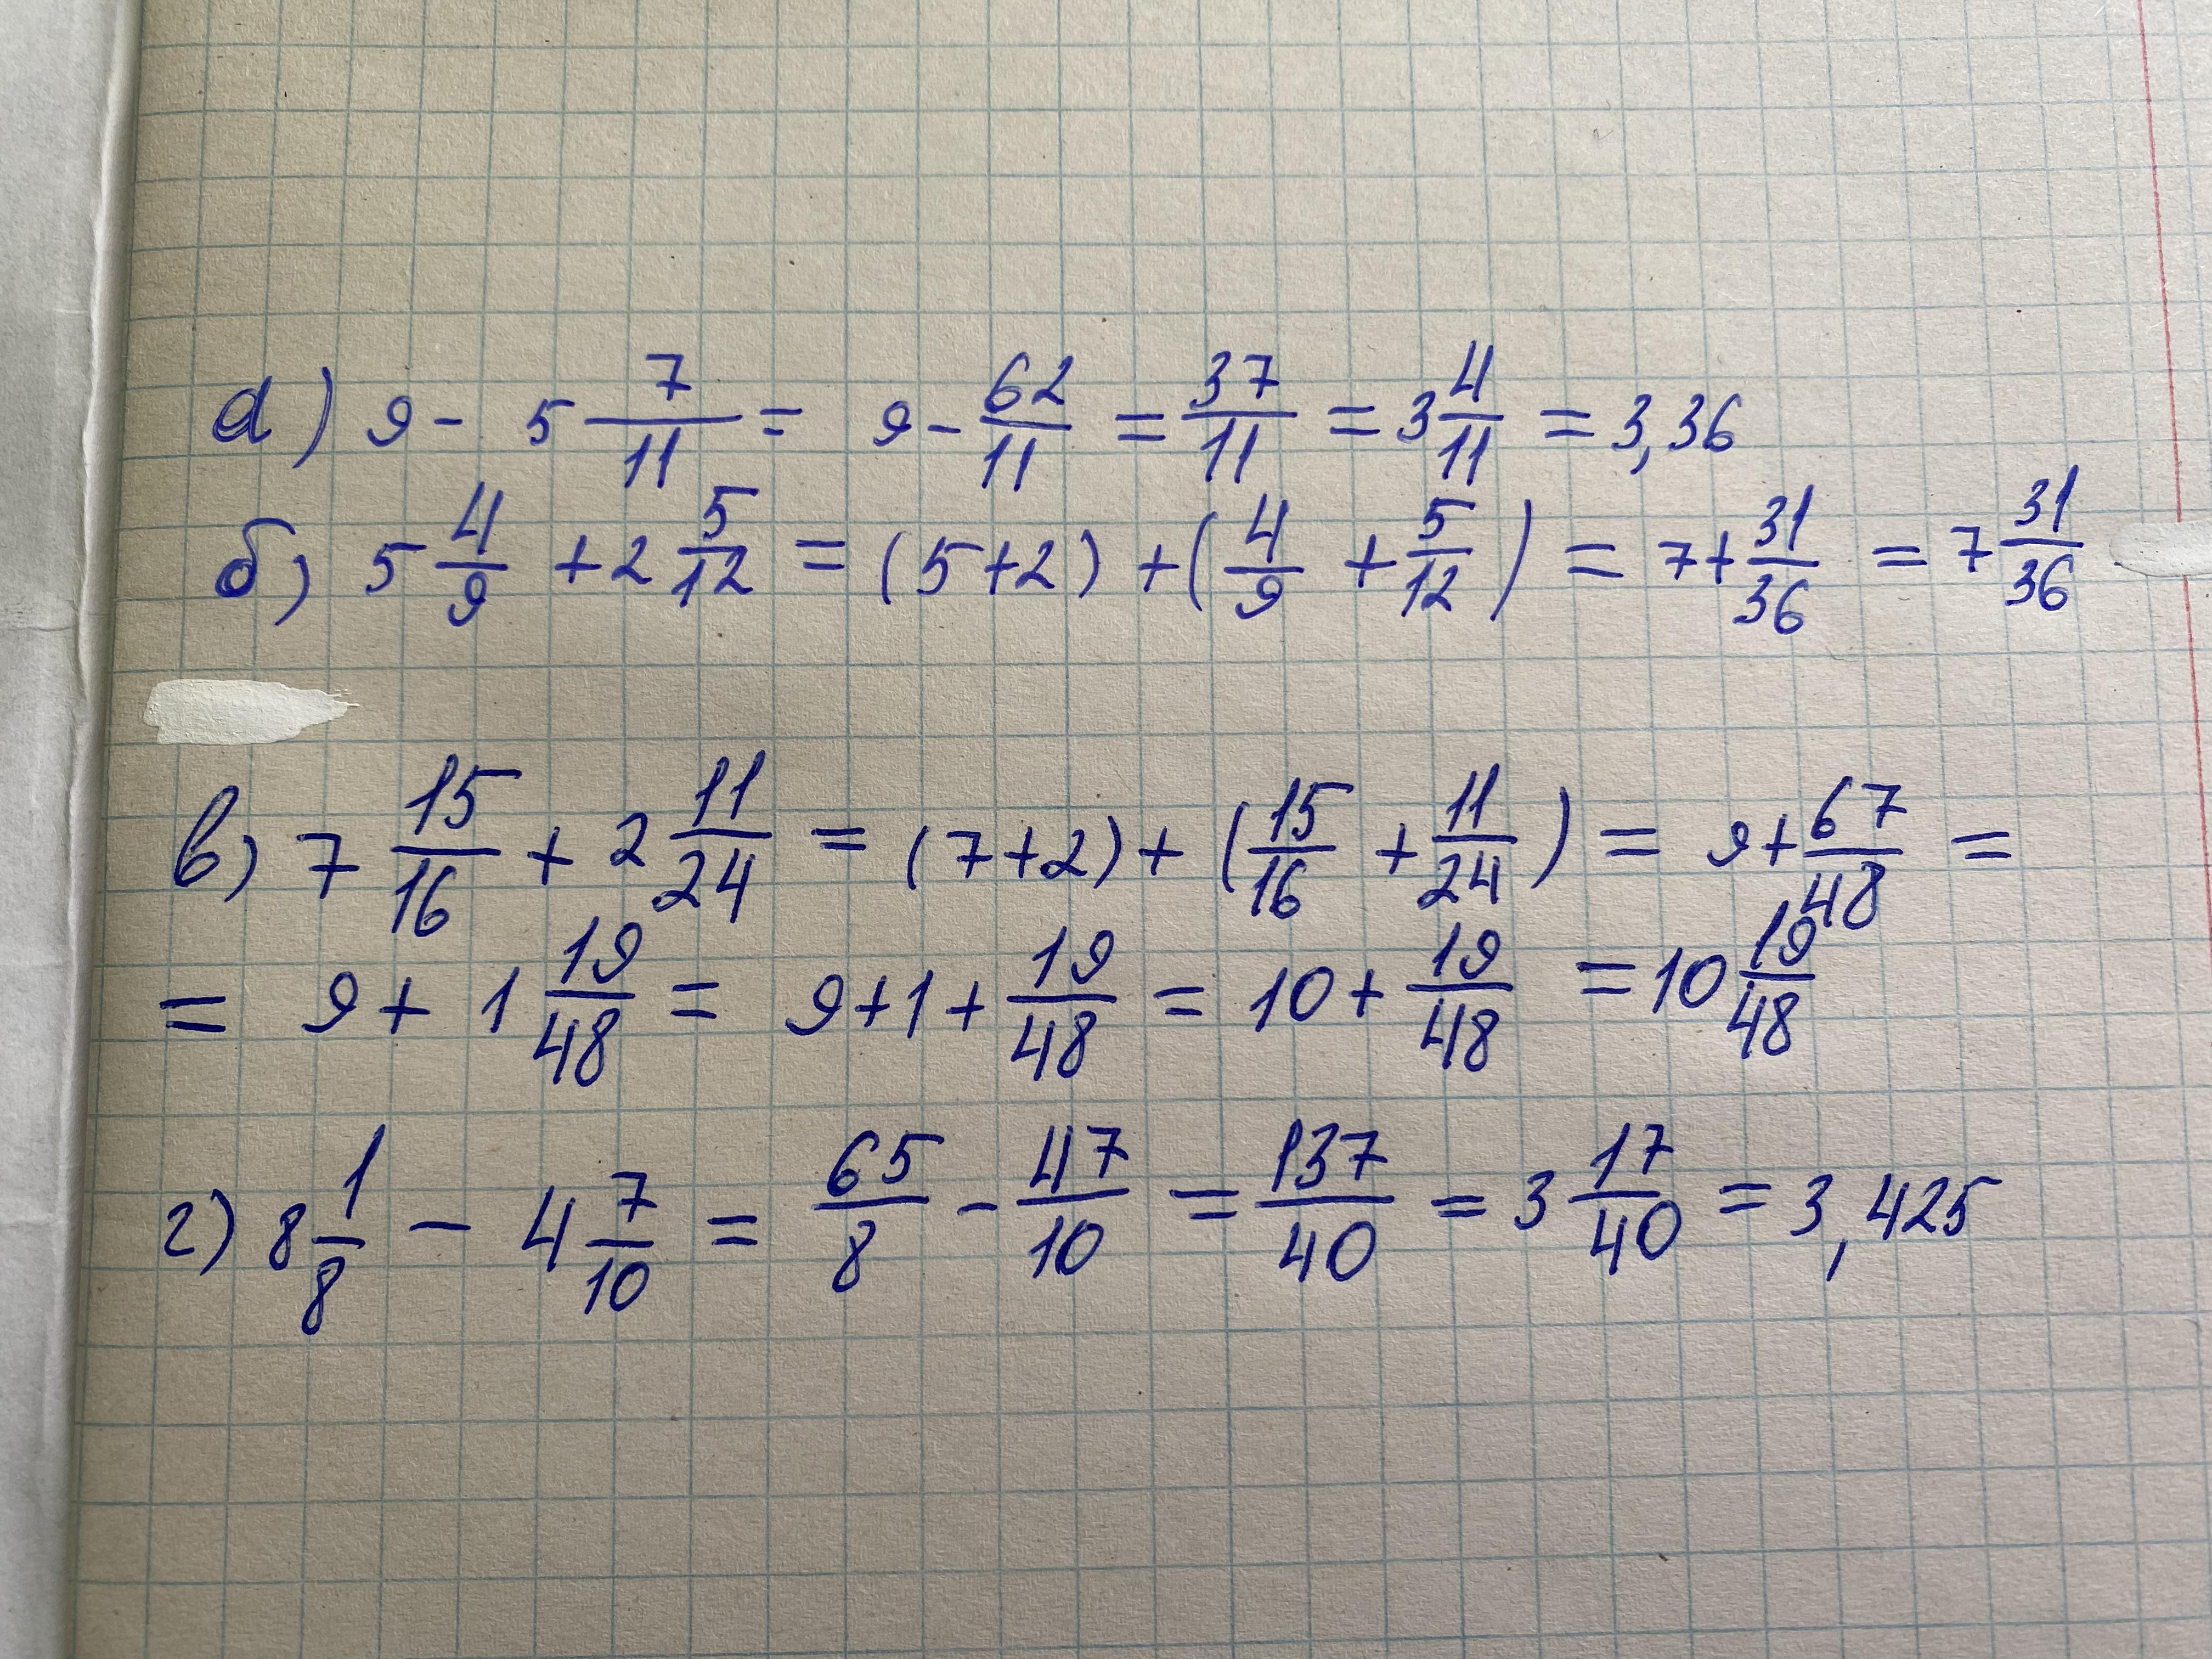 а) 9 - 5 7/11 = 9 - 62/11 = 37/11 = 3 4/11 = 3,36
б) 5 4/9 + 2 5/12 = (5+2) + (4/9 + 5/12) = 7 + 31/36 = 7 31/36
в) 7 15/16 + 2 11/24 = (7+2) + (15/16 + 11/24) = 9 + 67/48 =
= 9 + 1 19/48 = 9 + 1 + 19/48 = 10 + 19/48 = 10 19/48
г) 8 1/8 - 4 7/10 = 65/8 - 47/10 = 137/40 = 3 17/40 = 3,425